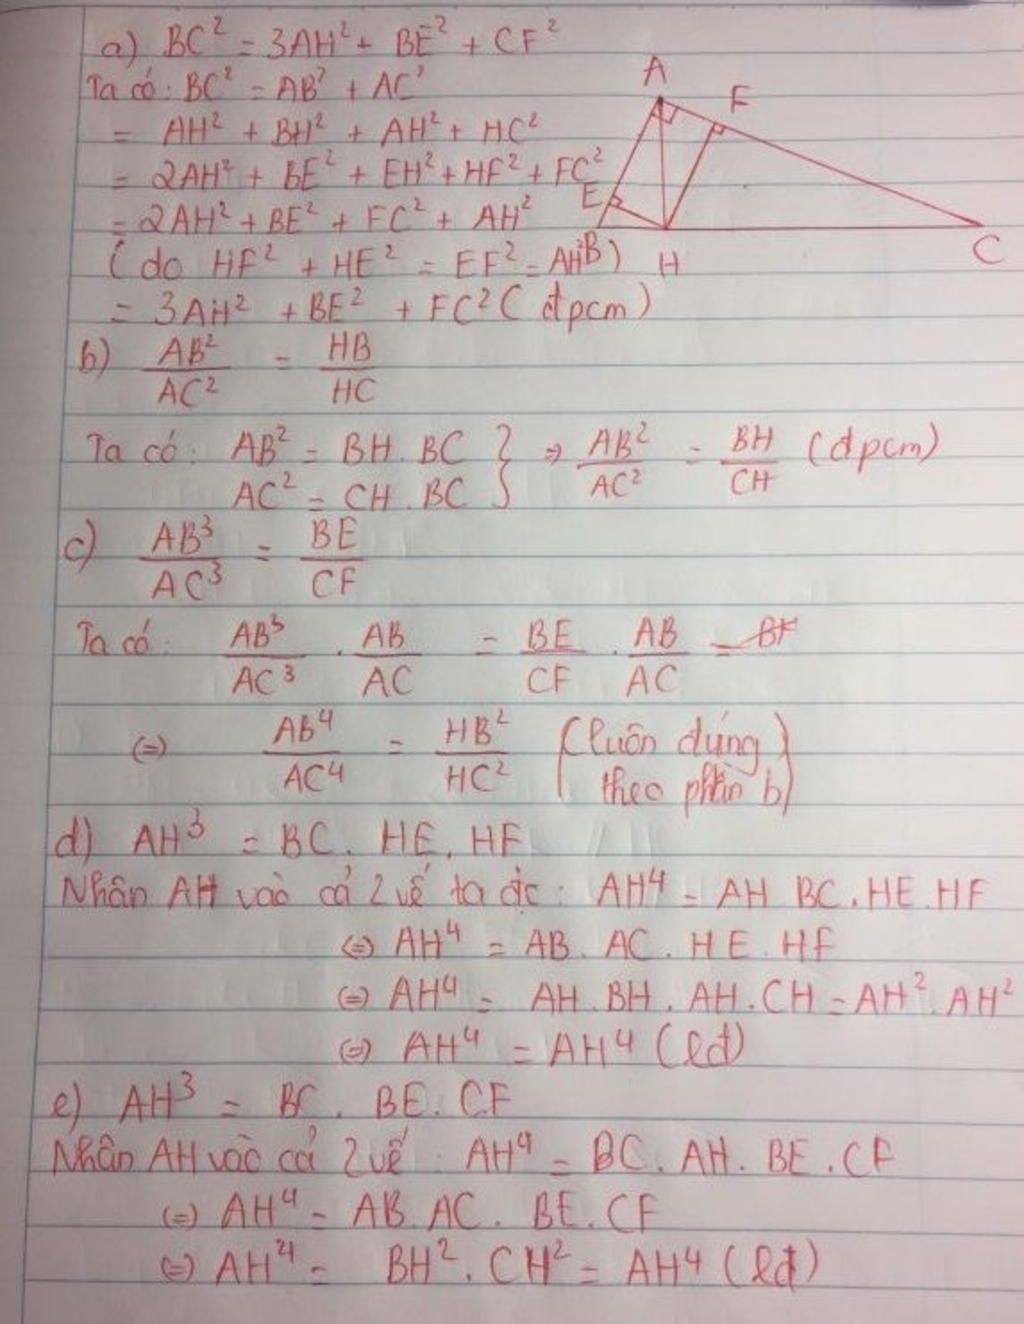 a) BC² = 3AH² + BE² + CF²
Ta có: BC² = AB² + AC²
= AH² + BH² + AH² + HC²
= 2AH² + BE² + EH² + HF² + FC²
= 2AH² + BE² + FC² + AH²
(do HF² + HE² = EF² = AH²)
= 3AH² + BE² + FC² (đpcm)
A
F
E
B
H
C
b) AB²/AC² = HB/HC
Ta có: AB² = BH.BC
AC² = CH.BC } => AB²/AC² = BH/CH (đpcm)
c) AB³/AC³ = BE/CF
Ta có: AB³/AC³ . AB/AC = BE/CF . AB/AC = BF
(=) AB⁴/AC⁴ = HB²/HC² (luôn đúng theo phần b)
d) AH³ = BC. HE. HF
Nhân AH vào cả 2 vế ta đc: AH⁴ = AH BC.HE.HF
(=) AH⁴ = AB. AC. HE. HF
(=) AH⁴ = AH.BH. AH.CH = AH². AH²
(=) AH⁴ = AH⁴ (lđ)
e) AH³ = BC. BE. CF
Nhân AH vào cả 2 vế: AH⁴ = BC. AH. BE. CF
(=) AH⁴ = AB. AC. BE. CF
(=) AH⁴ = BH². CH² = AH⁴ (lđ)